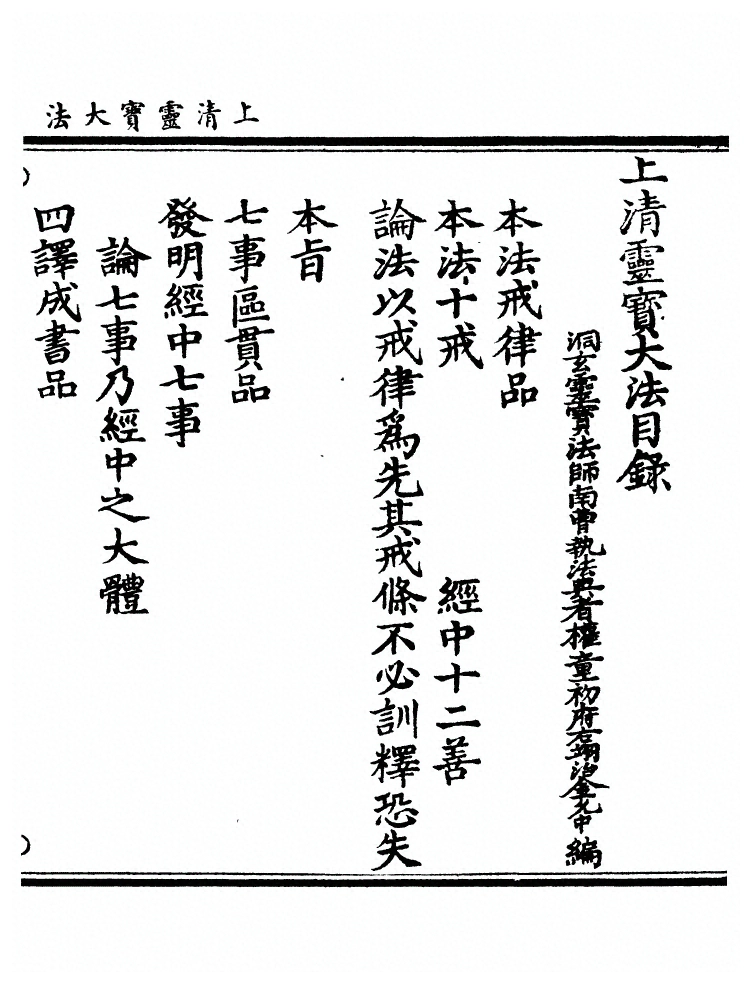 上清靈寶大法
上清靈寶大法目録
洞玄靈寶法師南曹執法典者權童初府右翊治金允中編
本法戒律品
本法十戒　經中十二善
論法以戒律爲先其戒條不必訓釋恐失
本旨
七事區貫品
發明經中七事
論七事乃經中之大體
四譯成書品